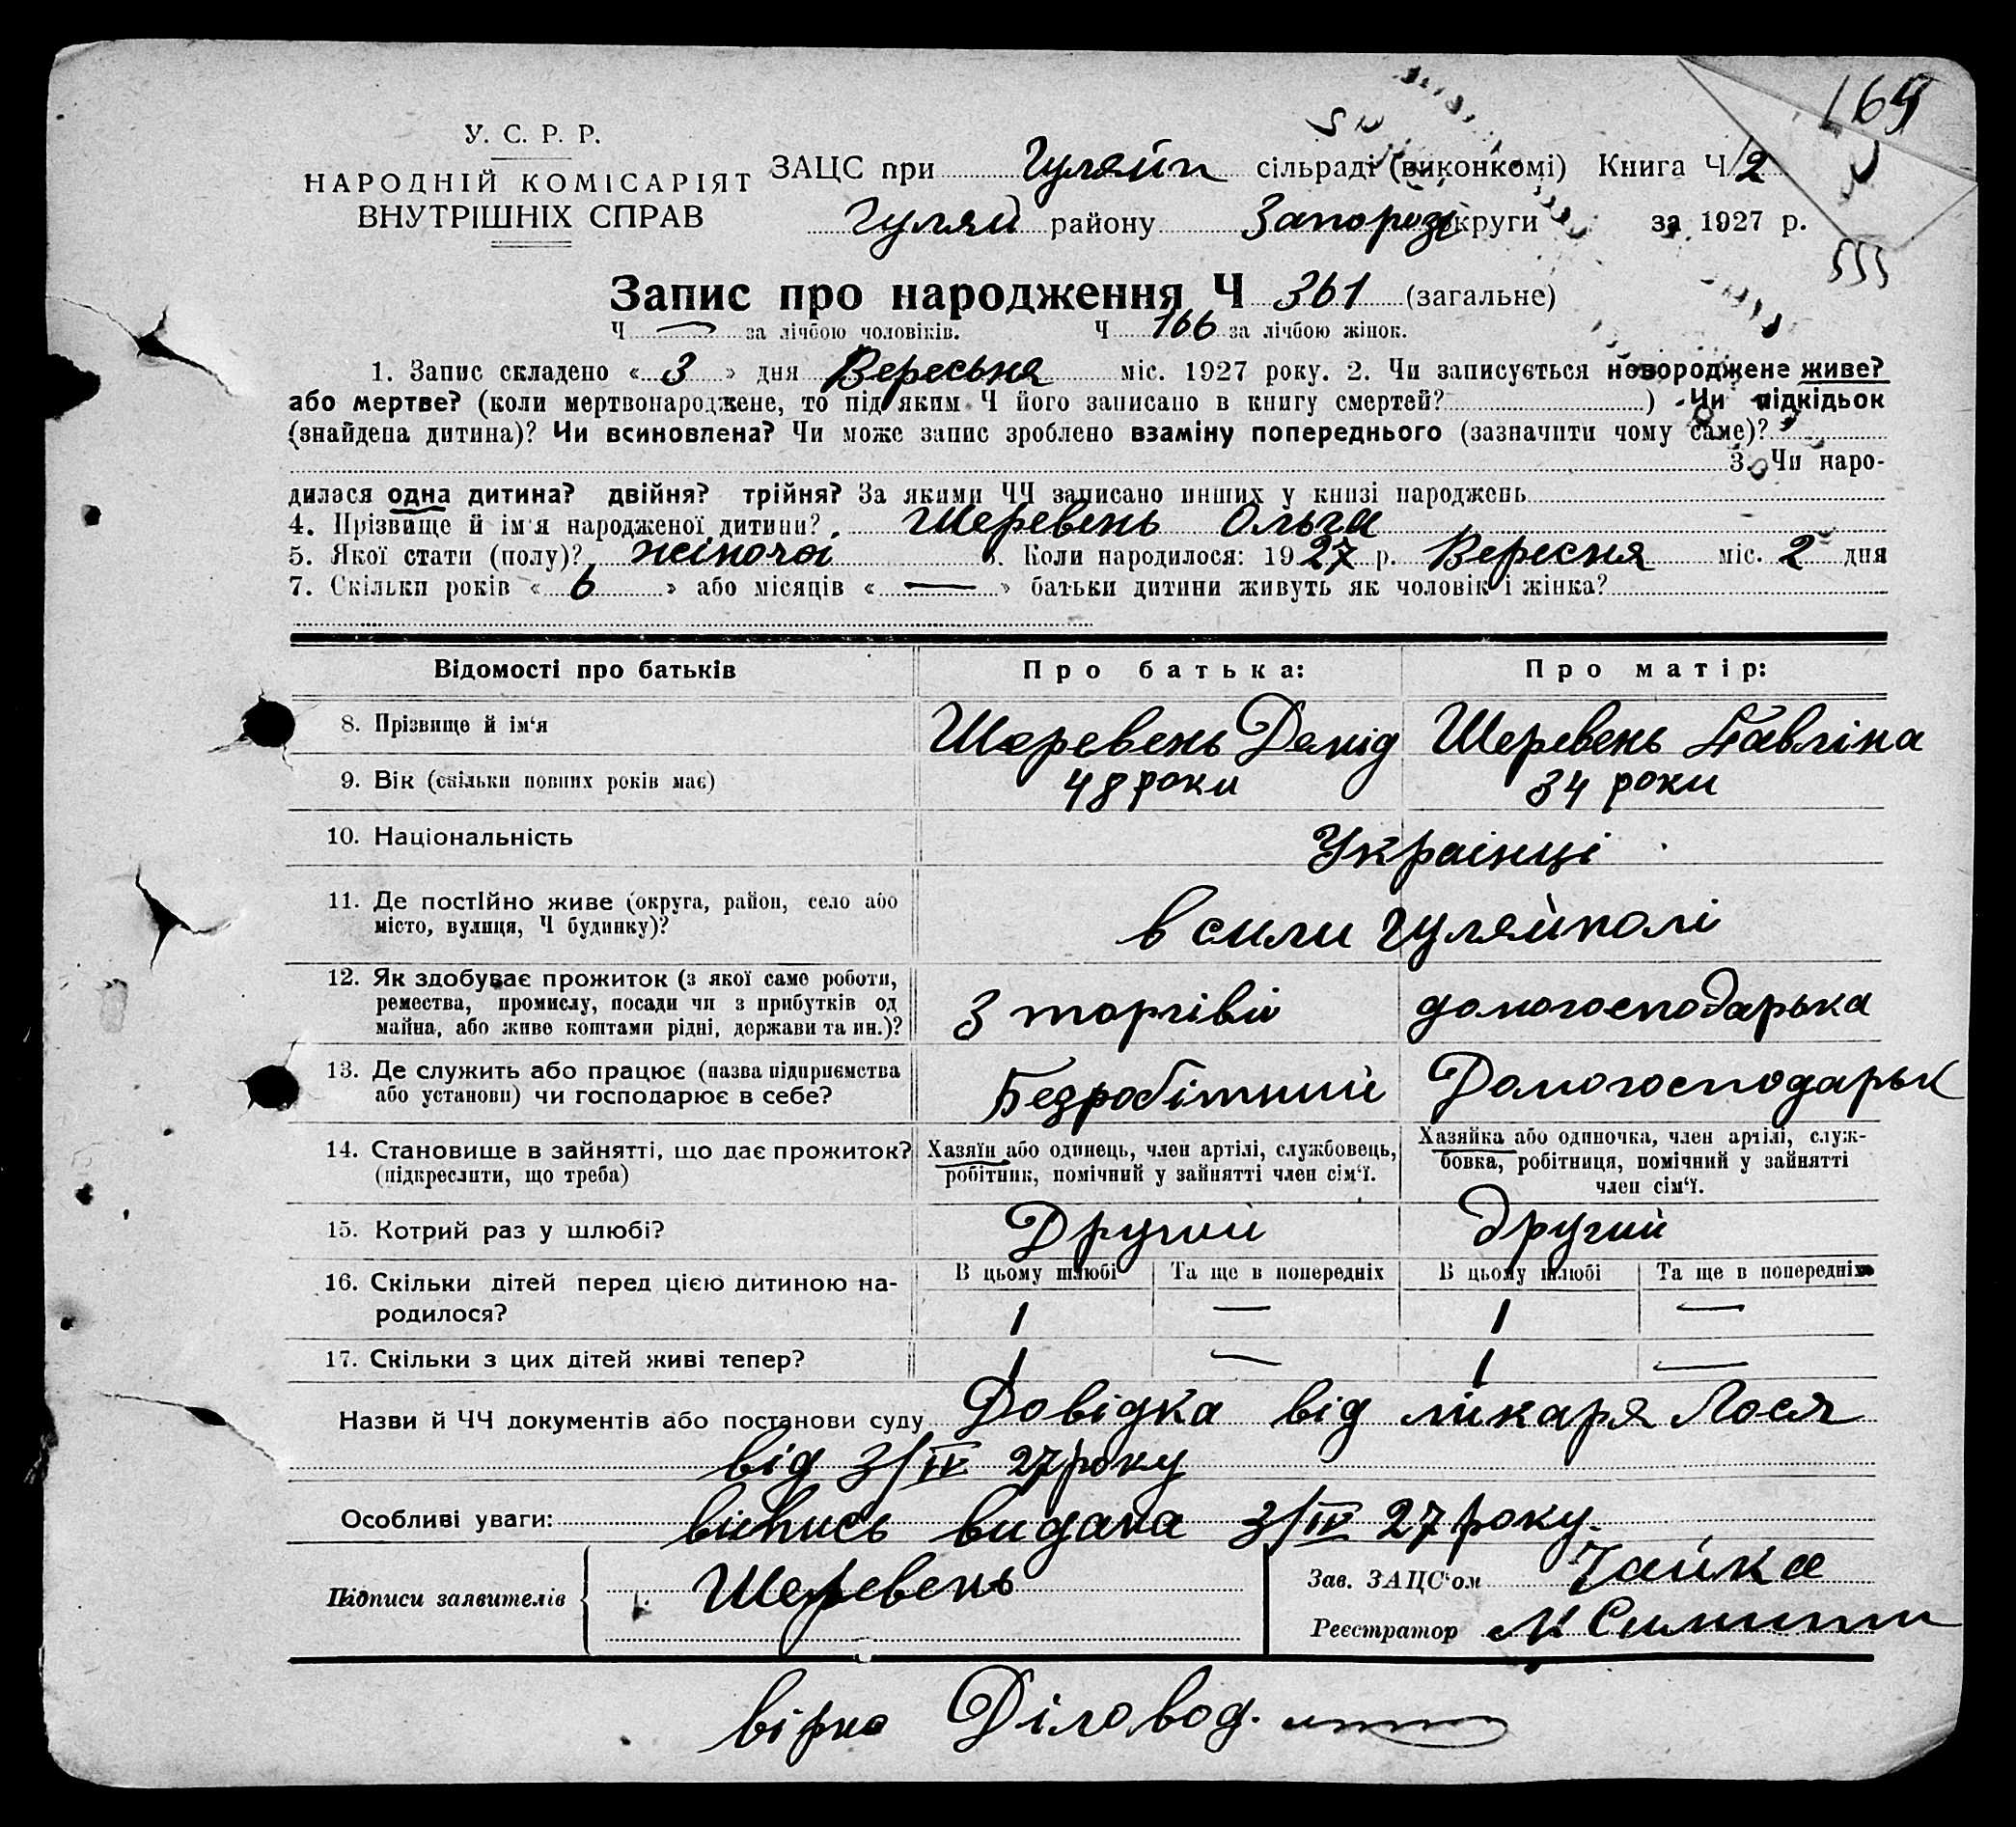 165
У. С. Р. Р.
НАРОДНІЙ КОМІСАРІЯТ
ВНУТРІШНІХ СПРАВ
ЗАЦС при Гуляйп сільраді (виконкомі) Книга Ч 2
Гуляй району Запорізь округи за 1927 р.
555
Запис про народження Ч 361 (загальне)
Ч — за лічбою чоловіків. Ч 166 за лічбою жінок.
1. Запис складено « 3 » дня Вересьня міс. 1927 року. 2. Чи записується новороджене живе?
або мертве? (коли мертвонароджене, то під яким Ч його записано в книгу смертей? ) Чи підкідьок
(знайдена дитина)? Чи всиновлена? Чи може запис зроблено взаміну попереднього (зазначити чому саме)?
3. Чи наро-
дилася одна дитина? двійня? трійня? За якими ЧЧ записано инших у книзі народжень
4. Прізвище й ім'я народженої дитини? Шеревень Ольга
5. Якої стати (полу)? жіночоі 6. Коли народилося: 1927 р. Вересня міс. 2 дня
7. Скільки років « 6 » або місяців « — » батьки дитини живуть як чоловік і жінка?
Відомості про батьків Про батька: Про матір:
8. Прізвище й ім'я Шеревень Демід Шеревень Павліна
9. Вік (скільки повних років має) 48 роки 34 роки
10. Національність Украінці
11. Де постійно живе (округа, район, село або
місто, вулиця, Ч будинку)? в сили Гуляйполі
12. Як здобуває прожиток (з якої саме роботи,
ремества, промислу, посади чи з прибутків од
майна, або живе коштами рідні, держави та ин.)? З торгівлі домогосподарька
13. Де служить або працює (назва підприємства
або установи) чи господарює в себе? Безробітний Домогосподарьк
14. Становище в зайнятті, що дає прожиток?
(підкреслити, що треба)
Хазяїн або одинець, член артілі, службовець,
робітник, помічний у зайнятті член сім'ї.
Хазяйка або одиночка, член артілі, служ-
бовка, робітниця, помічний у зайнятті
член сім'ї.
15. Котрий раз у шлюбі? Другий Другий
16. Скільки дітей перед цією дитиною на-
родилося?
В цьому шлюбі Та ще в попередніх В цьому шлюбі Та ще в попередніх
1 — 1 —
17. Скільки з цих дітей живі тепер? 1 — 1 —
Назви й ЧЧ документів або постанови суду Довідка від лікаря Лося
від 3/IX 27 року
Особливі уваги: випись видана 3/IX 27 року.
Підписи заявителів Шеревень
Зав. ЗАЦС'ом Чайка
Реєстратор
вірно Діловод.